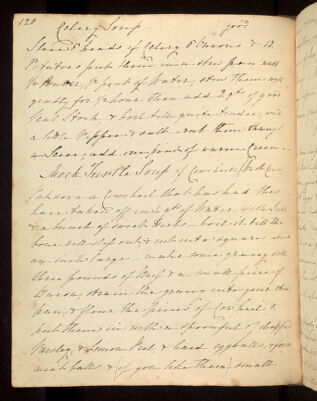 120 Celery Soup good
Slice 6 heads of Celery 6 Onions & 12
Potatoes put them in a stew pan with
Butter, pint of Water, stew them
gently for hour then add 2 qts of good
Veal Stock & boil till quite tender, with
a little Pepper & salt rub them through
a Sieve, add one pint of warm Cream
Mock Turtle Soup of Cowheel
Put on a Cowheel that has had the
hair taken off in qts of Water, with Salt
& a bunch of sweet herbs boil it till the
bones will slip out & cut into squares
an inch large make some gravy with
three pounds of Beef & a small piece of
Bacon, strain the gravy into your stew
pan, & flour the pieces of Cow heel &
put them in with a spoonful of chopped
Parsley, & Lemon Peel, & hard egg balls, & force
meat balls & (if you like them) small